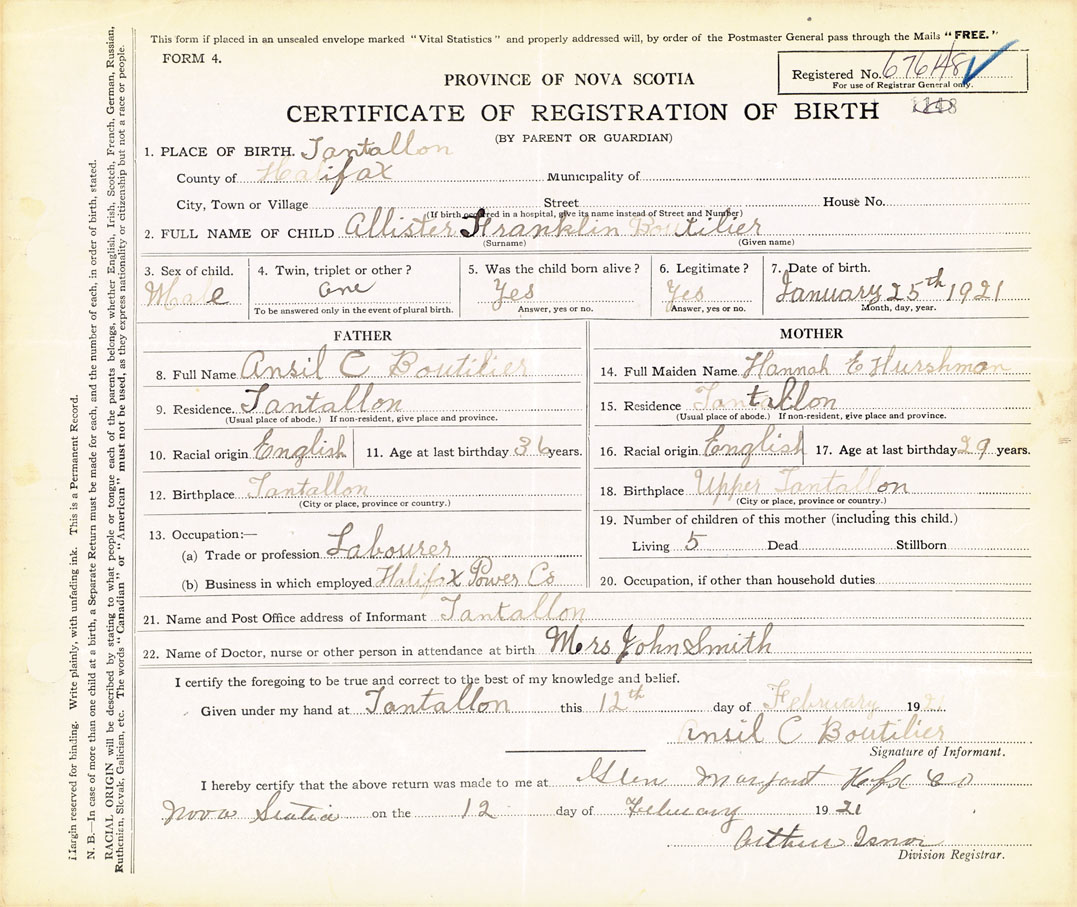 This form if placed in an unsealed envelope marked "Vital Statistics" and properly addressed will, by order of the Postmaster General pass through the Mails "FREE."
FORM 4.
Registered No. 67648
For use of Registrar General only.
PROVINCE OF NOVA SCOTIA
CERTIFICATE OF REGISTRATION OF BIRTH
(BY PARENT OR GUARDIAN)
1. PLACE OF BIRTH. Tantallon
County of Halifax Municipality of
City, Town or Village Street House No.
(If birth occurred in a hospital, give its name instead of Street and Number)
2. FULL NAME OF CHILD Allister Franklin Boutilier
(Surname) (Given name)
3. Sex of child. 4. Twin, triplet or other? 5. Was the child born alive? 6. Legitimate? 7. Date of birth.
Male one Yes Yes January 25th 1921
To be answered only in the event of plural birth. Answer, yes or no. Answer, yes or no. Month, day, year.
FATHER
8. Full Name Ansil C Boutilier
9. Residence. Tantallon
(Usual place of abode.) If non-resident, give place and province.
10. Racial origin English 11. Age at last birthday 36 years.
12. Birthplace Tantallon
(City or place, province or country.)
13. Occupation:—
(a) Trade or profession Labourer
(b) Business in which employed Halifax Power Co
MOTHER
14. Full Maiden Name Hannah E Hurshman
15. Residence Tantallon
(Usual place of abode.) If non-resident, give place and province.
16. Racial origin English 17. Age at last birthday 29 years.
18. Birthplace Upper Tantallon
(City or place, province or country.)
19. Number of children of this mother (including this child.)
Living 5 Dead Stillborn
20. Occupation, if other than household duties
21. Name and Post Office address of Informant Tantallon
22. Name of Doctor, nurse or other person in attendance at birth Mrs John Smith
I certify the foregoing to be true and correct to the best of my knowledge and belief.
Given under my hand at Tantallon this 12th day of February 1921
Ansil C Boutilier
Signature of Informant.
I hereby certify that the above return was made to me at Glen Margaret Hfx Co
Nova Scotia on the 12 day of February 1921
Arthur Isnor
Division Registrar.
Margin reserved for binding. Write plainly, with unfading ink. This is a Permanent Record.
N. B.—In case of more than one child at a birth, a Separate Return must be made for each, and the number of each, in order of birth, stated.
RACIAL ORIGIN will be described by stating to what people or tongue each of the parents belongs, whether English, Irish, Scotch, French, German, Russian,
Ruthenian, Slovak, Galician, etc. The words "Canadian" or "American" must not be used, as they express nationality or citizenship but not a race or people.